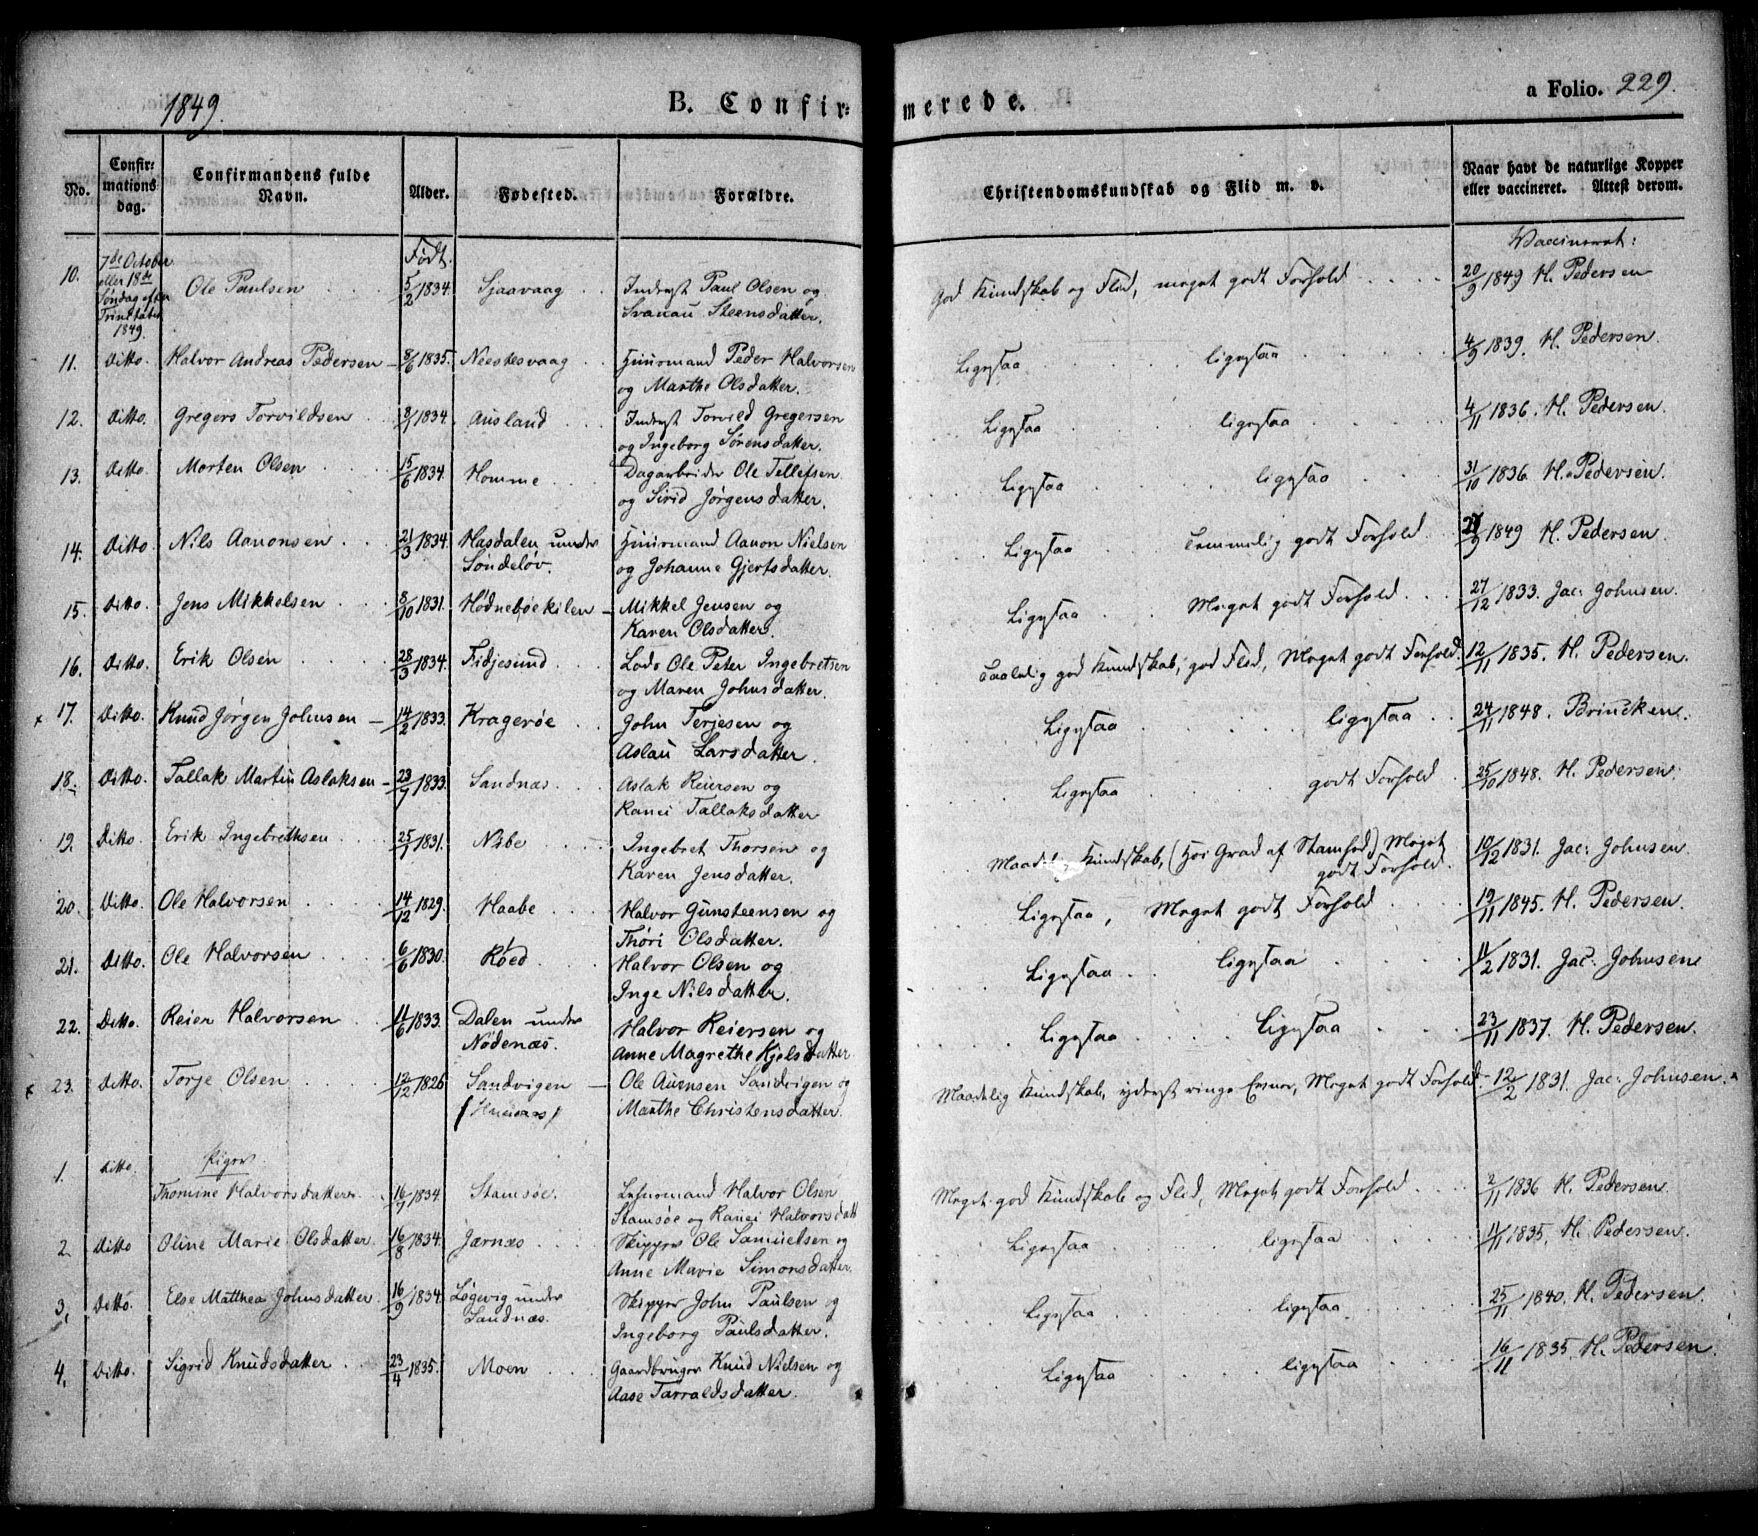 1849. B. Confirmerede. a Folio. 229.
No. Confirmations dag. Confirmandens fulde Navn. Alder. Fødested. Forældre. Christendomskundskab og Flid m. v. Naar havt de naturlige Kopper eller vaccineret. Attest derom.
Født. Vaccineret:
10. 7de October eller 18de Søndag efter Trinitatis 1849. Ole Paulsen 5/2 1834. Sjaavaag Inderst Paul Olsen og God Kundskab og Flid, meget godt Forhold 20/9 1849 H. Pedersen
Svanau Steensdatter.
11. Ditto. Halvor Andreas Pedersen 8/6 1835. Neestesvaag Huusmand Peder Halvorsen Ligesaa ligesaa 4/9 1839. H. Pedersen.
og Marthe Olsdatter.
12. Ditto. Gregers Torvildsen 8/1 1834. Ausland Inderst Torvild Gregersen Ligesaa ligesaa 4/11 1836. H. Pedersen.
og Ingeborg Sørensdatter.
13. Ditto. Morten Olsen 15/6 1834. Homme Dagarbeider Ole Tellefsen Ligesaa ligesaa 31/10 1836 H. Pedersen.
og Sirid Jørgensdatter.
14. Ditto. Nils Aanonsen 21/3 1834. Hasdalen under Huusmand Aanon Nielsen Ligesaa Temmelig godt Forhold 27/9 1849 H. Pedersen.
Søndeløv. og Johanne Gjertsdatter.
15. Ditto. Jens Mikkelsen 8/10 1831. Hødnebøekilen Mikkel Jensen og Ligesaa Meget godt Forhold 27/12 1833. Jac: Johnsen.
Karen Olsdatter.
16. Ditto. Erik Olsen 28/3 1834. Fidjesund Lods Ole Peter Ingebretsen Taalelig god Kundskab, god Flid, Meget godt Forhold. 12/11 1835. H. Pedersen.
og Maren Johnsdatter.
x 17. Ditto. Knud Jørgen Johnsen 14/2 1833. Kragerøe John Terjesen og Ligesaa ligesaa 24/11 1848. Brincken.
Aslau Larsdatter.
18. Ditto. Tallak Martin Aslaksen 23/7 1833. Sandnæs Aslak Reiersen og Ligesaa godt Forhold 25/10 1848. H. Pedersen.
Ranei Tallaksdatter
19. Ditto. Erik Ingebrethsen 25/7 1831. Nibe Ingebret Thorsen og Maadelig Kundskab, (høi Grad af Stamhed) Meget godt Forhold. 10/12 1831. Jac: Johnsen.
Karen Jensdatter.
20. Ditto. Ole Halvorsen 14/12 1829. Haabe Halvor Gunsteensen og Ligesaa, Meget godt Forhold 19/11 1845. H. Pedersen.
Thøri Olsdatter.
21. Ditto. Ole Halvorsen 6/6 1830. Røed Halvor Olsen og Ligesaa ligesaa 11/2 1831. Jac: Johnsen
Inge Nilsdatter.
22. Ditto. Reier Halvorsen 11/6 1833. Dalen under Halvor Reiersen og Ligesaa ligesaa 23/11 1837. H. Pedersen.
Nødenæs. Anne Magrethe Kjelsdatter
x 23. Ditto. Torje Olsen 12/12 1826 Sandvigen Ole Auensen Sandvigen og Maadelig Kundskab, yderst ringe Evner, Meget godt Forhold 12/2 1831. Jac: Johnsen.
Marthe Christensdatter.
Piger
1. Ditto. Thomine Halvorsdatter 16/7 1834. Stamsøe. Lehnsmand Halvor Olsen Meget god Kundskab og Flid, Meget godt Forhold 2/11 1836 H. Pedersen.
Stamsøe og Ranei Halvorsdatt
2. Ditto Oline Marie Olsdatter 16/8 1834. Jærnæs Skipper Ole Samuelsen og Ligesaa ligesaa 11/11 1835. H. Pedersen.
Anne Marie Simonsdatter.
3. Ditto. Else Matthea Johnsdatter 16/9 1834. Løgevig under Skipper John Paulsen og Ligesaa ligesaa 25/11 1840. H. Pedersen.
Sandnæs. Ingeborg Paulsdatter.
4. Ditto. Sigrid Knudsdatter 23/4 1835. Moen Gaardbruger Knud Nielsen og Ligesaa ligesaa 16/11 1835 H. Pedersen.
Aase Tarraldsdatter.